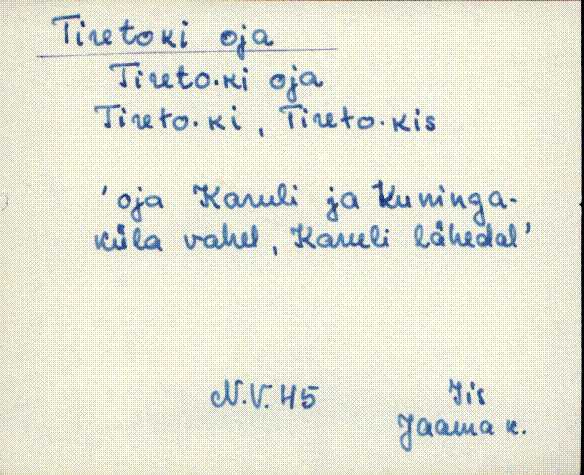 Tiretoki oja
Tireto·ki oja
Tireto·ki, Tireto·kis
'oja Karuli ja Kuninga-
küla vahel, Karuli lähedal'
N.V. 45 Iis
Jaama k.